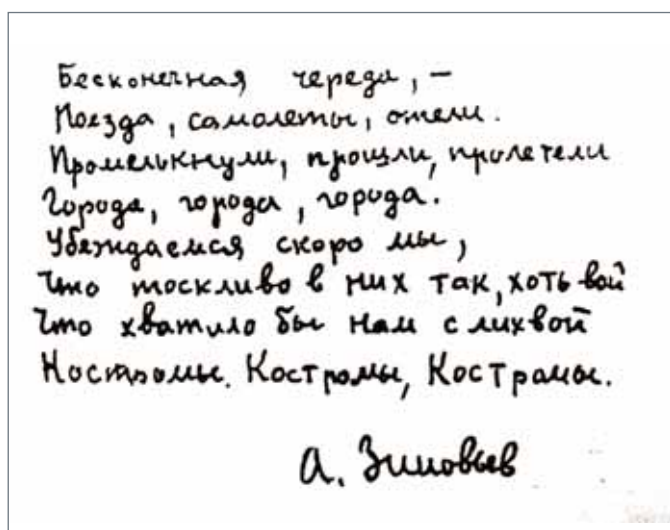 Бесконечная череда, –
Поезда, самолеты, отели.
Промелькнули, прошли, пролетели
Города, города, города.
Убеждаемся скоро мы,
Что тоскливо в них так, хоть вой
Что хватило бы нам с лихвой
Костромы. Костромы, Костромы.
А. Зиновьев